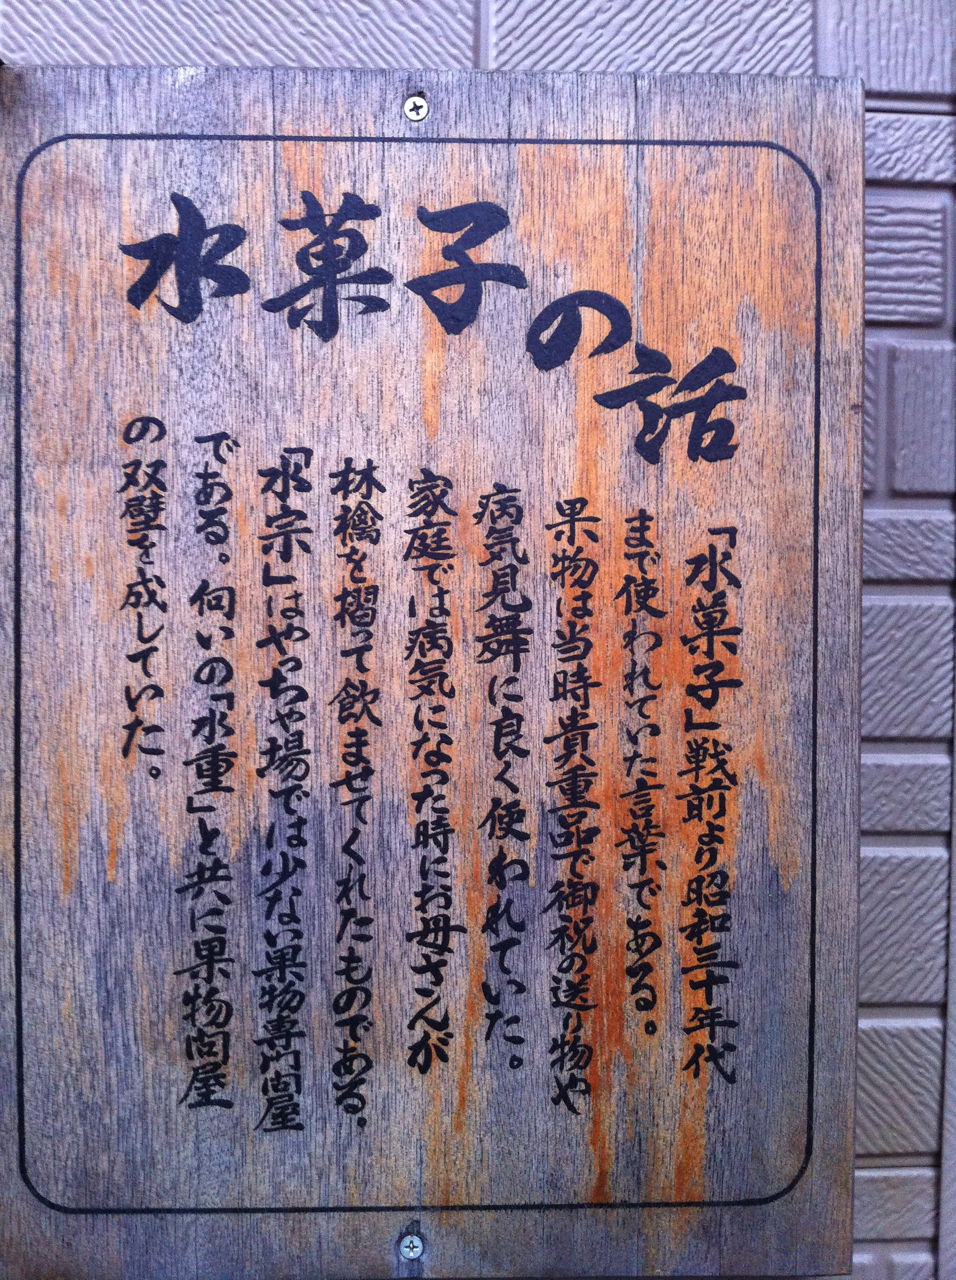 水菓子の話
「水菓子」戦前より昭和三十年代
まで使われていた言葉である。
果物は当時貴重品で御祝の送り物や
病気見舞に良く使われていた。
家庭では病気になった時にお母さんが
林檎を摺って飲ませてくれたものである。
「水宗」はやっちゃ場では少ない果物専門問屋
である。向いの「水重」と共に果物問屋
の双壁を成していた。